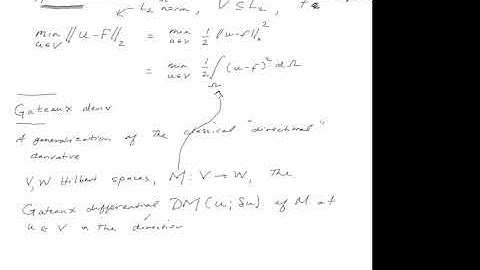 L₂ norm, V ⊆ L₂,
min u∈V ‖u-f‖₂ = min u∈V 1/2 ‖u-f‖₂²
= min u∈V 1/2 ∫Ω (u-f)² dΩ
Gateaux deriv
A generalization of the classical "directional"
derivative
V, W Hilbert spaces, M: V → W, The
Gateaux differential DM(u; δu) of M at
u ∈ V in the direction